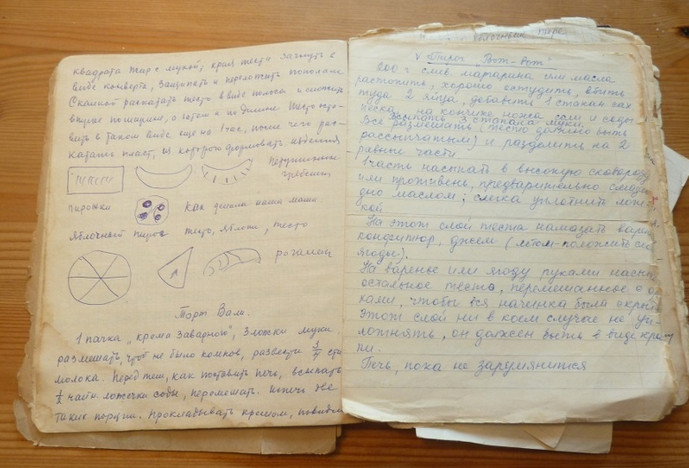 квадрата жир с мукой, края теста загнуть в
виде конверта, защипать и
Скалкой раскатать тесто в виде полосы и сложить
вдвое по ширине, а затем и по длине. Тесто
в таком виде еще на 1 час, после чего рас-
катать пласт, из которого формовать изделия
гребешки,
пирожки как делала наша мама
Яблочный пирог тесто, яблоки, тесто
рогалики
Торт Валя.
1 пачка „крема заварного", 3 ложки муки
размешать, чтоб не было комков, развести 3/4 ста
молока. Перед тем, как поставить печь, всыпать
1/2 чайн. ложечки соды, перемешать. Испечь две
такие порции. Прокладывать кремом, повидл
Яблочный пирог
v Пирог
200 г. слив. маргарина или масла
растопить, хорошо остудить, вбить
туда 2 яйца, добавить 1 стакан сах
песка, на кончике ножа соли и соды
Всыпать 3 стакана муки.
Все размешать (тесто должно быть
рассыпчатым) и разделить на 2
равные части.
1 часть насыпать в высокую сковороду
или противень, предварительно смазан
но маслом; слегка уплотнить лож
кой
На этот слой теста намазать варе
конфитюр, джем (летом положить св
ягоды).
На варенье или ягоду руками насып
остальное тесто, перемешанное с о
ками, чтобы вся начинка была укрыта
Этот слой ни в коем случае не уп
лотнять, он должен быть в виде крош
ки.
Печь, пока не зарумянится